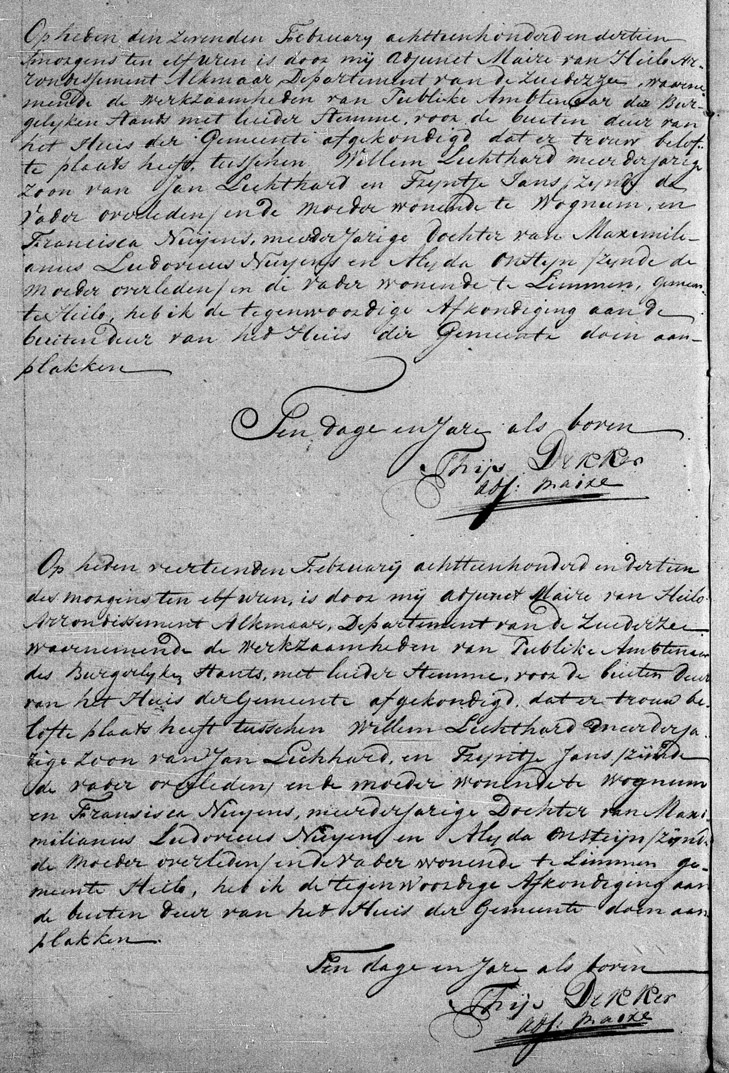 Op heden den zevenden February achttienhonderd en dertien
smorgens ten elf uren is door mij adjunct Maire van Heilo Ar-
rondissement Alkmaar, Departement van de Zuiderzee, waarne-
mende de werkzaamheden van Publike Ambtenaar des Bur-
gelyken Stants met luider Stemme, voor de buiten deur van
het Huis der Gemeente afgekondigd dat er trouw belof-
te plaats heeft, tusschen Willem Luthard meerderjarig
zoon van Jan Luthard en Tryntje Jans /zynde de
Vader overleden/ en de moeder wonende te Wognum, en
Francisca Nuyens, meerderjarige dochter van Maximili-
anus Ludovicus Nuyens en Alyda Onstyn /zynde de
moeder overleden/ en de vader wonende te Limmen, Gemeen-
te Heilo, heb ik de tegenwoordige Afkondiging aan de
buitendeur van het Huis der Gemeente doen aan-
plakken
Ten dage en Jare als boven
Thijs Dekker
adj. maire
Op heden veertienden February achttienhonderd en dertien
des morgens ten elf uren, is door mij adjunct Maire van Heilo
Arrondissement Alkmaar, Departement van de Zuiderzee
waarnemende de werkzaamheden van Publike Ambtenaar
des Burgerlyken Stants, met luider Stemme, voor de buiten deur
van het Huis der Gemeente afgekondigd, dat er trouw be-
lofte plaats heeft tusschen Willem Luthard meerderja-
rige zoon van Jan Luthard, en Tryntje Jans /zijnde
de vader overleden/ en de moeder wonende te Wognum
en Fransisca Nuyens, meerderjarige Dochter van Maxi-
milianus Ludovicus Nuyens en Alyda Onstijn /zijnde
de Moeder overleden/ en de vader wonende te Limmen ge-
meente Heilo, heb ik de tegenwoordige Afkondiging aan
de buiten deur van het Huis der Gemeente doen aan
plakken.
Ten dage en Jare als boven
Thijs Dekker
adj. maire